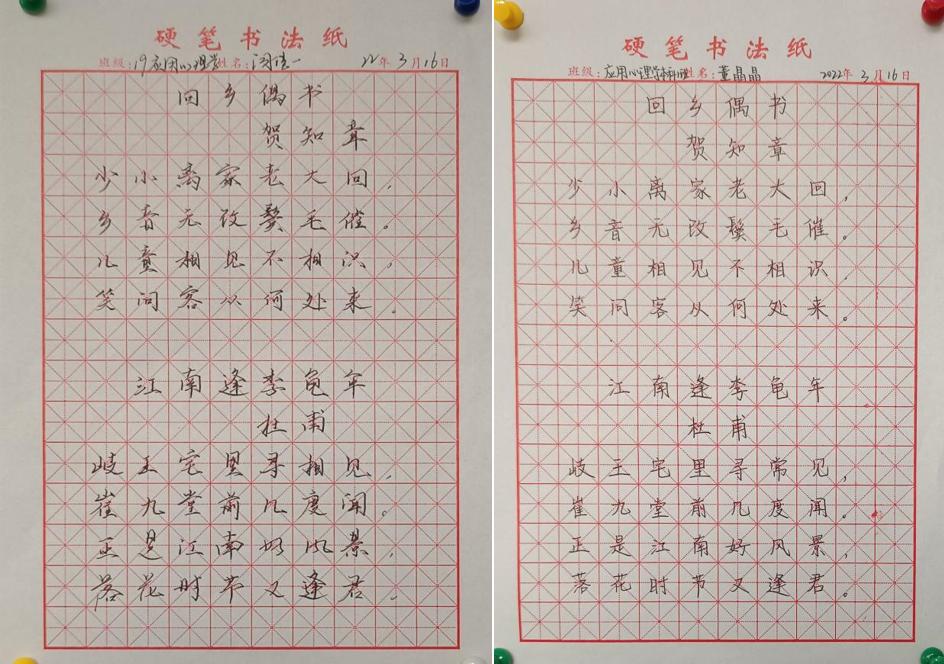 硬笔书法纸
班级：19应用心理学 姓名：闫佳一 22年3月16日
回乡偶书
贺知章
少小离家老大回，
乡音无改鬓毛催。
儿童相见不相识，
笑问客从何处来。
江南逢李龟年
杜甫
岐王宅里寻相见，
崔九堂前几度闻。
正是江南好风景，
落花时节又逢君。
硬笔书法纸
班级：应用心理学 姓名：董晶晶 2022年3月16日
回乡偶书
贺知章
少小离家老大回，
乡音无改鬓毛催。
儿童相见不相识，
笑问客从何处来。
江南逢李龟年
杜甫
岐王宅里寻常见，
崔九堂前几度闻。
正是江南好风景，
落花时节又逢君。